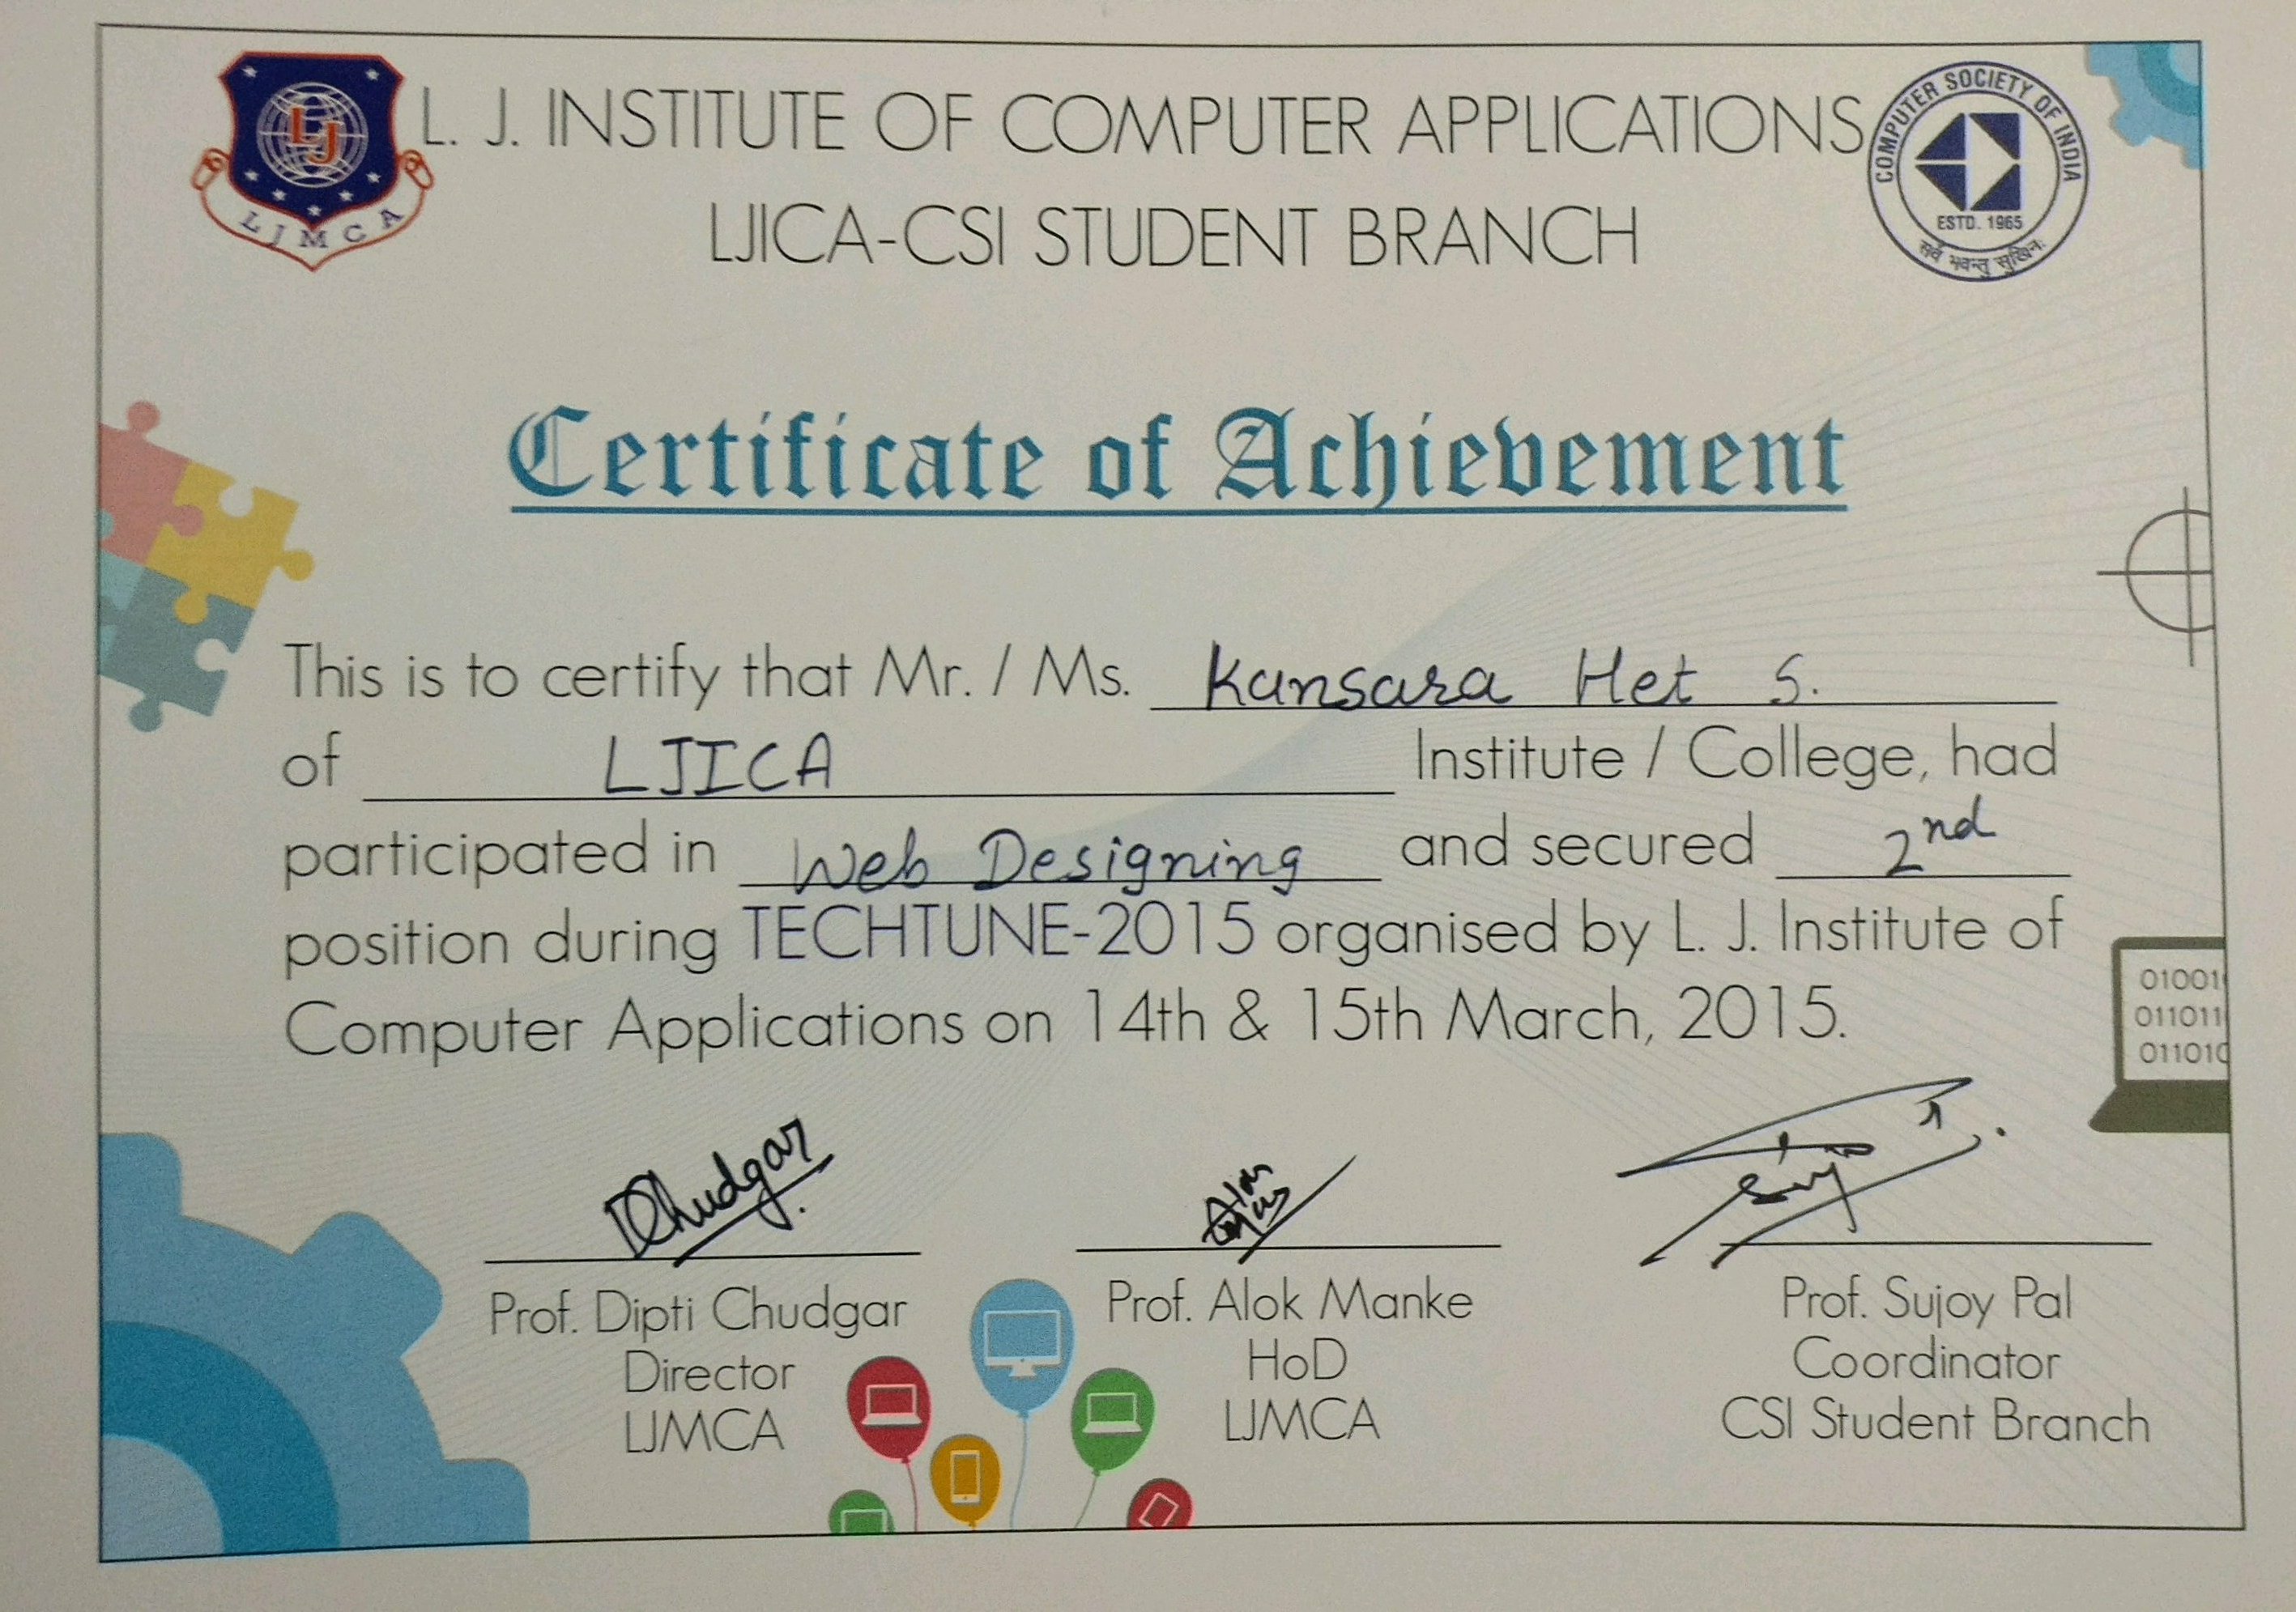 L. J. INSTITUTE OF COMPUTER APPLICATIONS
LJICA-CSI STUDENT BRANCH
LJ
LJMCA
COMPUTER SOCIETY OF INDIA
ESTD. 1965
सर्वे भवन्तु सुखिनः
Certificate of Achievement
This is to certify that Mr. / Ms. Kansara Het S.
of LJICA Institute / College, had
participated in Web Designing and secured 2nd
position during TECHTUNE-2015 organised by L. J. Institute of
Computer Applications on 14th & 15th March, 2015.
01001
011011
011010
DChudgar
Prof. Dipti Chudgar
Director
LJMCA
Prof. Alok Manke
HoD
LJMCA
Prof. Sujoy Pal
Coordinator
CSI Student Branch